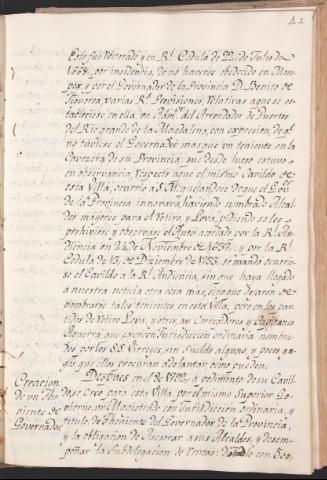 42
Esto fué reiterado y en Rl. Cedula de 22, de Julio de
1668, por insidencia, de no haverse obedecido en Mom-
pox, y por el Governador de la Provincia D. Benito de
Figueroa, varias Rs. Provisiones, relativas a que se es-
tableciese en ella, un Adm. del Arrendador de Puertos
del Rio grande de la Magdalena, con expresion, de q. no
tuviese el Governador mas que un teniente en la
Cavezera de su Provincia: que desde luego estuvo
en observancia, respecto a que el mismo Cavildo de
esta Villa, ocurrio a S. M. quejandose de que el Gov.
de la Provincia innovara, haviendo nombrado Alcal-
des mayores para el Retiro y Lova, pidiendo se los
prohiviese y observase el Auto acordado por la Rl. Au-
diencia en 24 de Noviembre de 1632; y por la Rl.
Cedula de 13, de Diziembre de 1733, se mandó ocurrie-
se el Cavildo a la Rl. Audiencia, sin que haya llegado
a nuestra noticia otra cosa mas, si que dejaron de
nombrarse tales tenientes en esta Villa, pero en los par-
tidos de Retiro Lova, y otros, ay Corregidores y Capitanes
Aguerra que exercen Jurisdiccion ordinaria nombra-
dos por los SS. Virreyes, sin sueldo alguno, y pocos ga-
ges que ellos procuran adelantar como pueden.
Creacion
de un The-
niente de
Governador
Despues en el de a pedimento de su Cavil-
do se Creó para esta Villa por el mismo Superior Go-
vierno, un Magistrado con Jurisdiccion ordinaria, y
titulo de theniente del Governador de la Provincia,
y la obligacion de Asesorar a sus Alcaldes, y desem-
peñar la Subdelegacion de Rentas: dotado con 800,